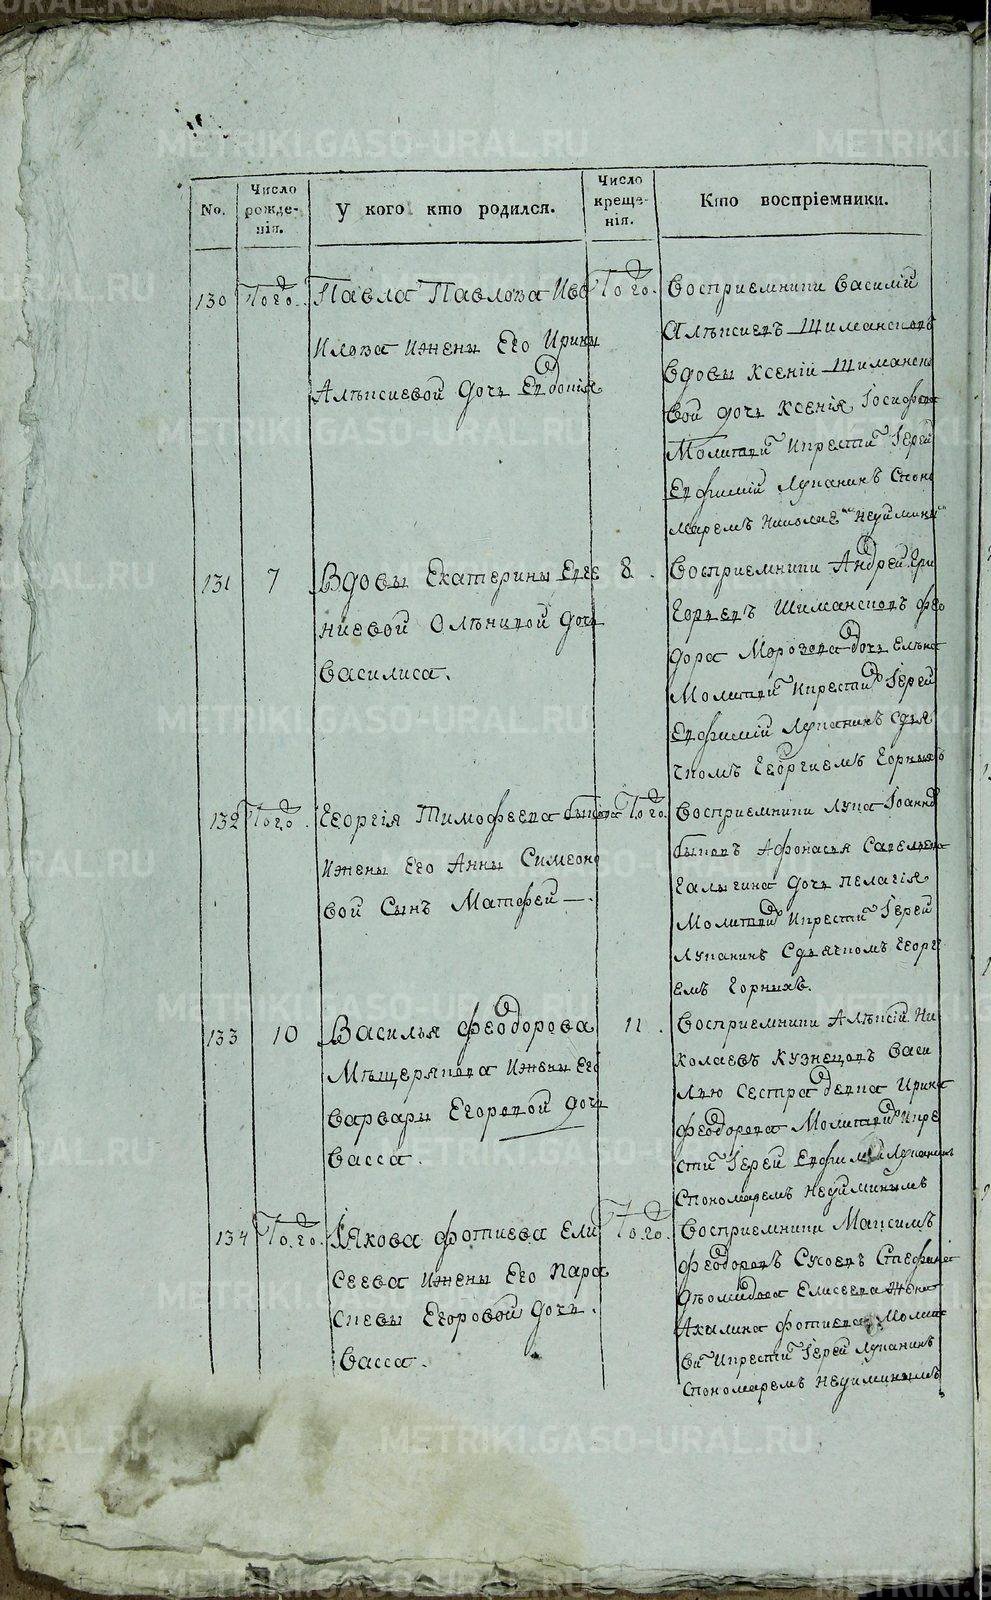 METRIKI.GASO-URAL.RU
No.
Число рожде-нія.
У кого кто родился.
Число креще-нія.
Кто воспріемники.
130
Того.
Павла Павлова
Илова ижены Его Ирины
Алѣксиевой дочь Евдокія
Того.
Восприемники Василій
Алѣксиевъ Шимансковъ
Вдовы Ксеній Шиманско
вой дочь Ксенія Іосифова
Молитви и крести Іерей
Евфимій Лупанинъ Споно
маремъ Николае Неуймины
131
7
Вдовы Екатерины Евге
ниевой Олѣнивой дочь
Василиса.
8.
Восприемники Андрей Гри
горьевъ Шимансковъ Фео
дора Морозова дочь Елѣна
Молитви и крести Іерей
Евфимій Лупанинъ Сдья
чкомъ Георгиемъ Горныхъ
132
Того.
Георгія Тимофеева Быкова
Ижены Его Анны Симеоно
вой Сынъ Матфей —.
Того.
Восприемники Лука Іоанно
Быковъ Афонасья Савельева
Галыгина дочь Пелагія
Молитви и крести Іерей
Лупанинъ Сдьячкомъ Георги
емъ Горныхъ.
133
10
Василья Феодорова
Мѣщерякова Ижены Его
Варвары Егоровой дочь
Васса.
11.
Восприемники Алѣксій Ни
колаевъ Кузнецовъ Васи
лью Сестра девка Ирина
Феодорова Молитви и кре
сти Іерей Евфимій Лупанинъ
Спономаремъ Неуйминымъ
134
Того.
Іякова Фотиева Ели
сеева Ижены Его Пара
скевы Егоровой дочь.
Васса.
Того.
Восприемники Максимъ
Феодоровъ Сусоевъ
Елисеева жена
Акилина Фотиева Молит
ви и крести Іерей Лупанинъ
Спономаремъ Неуйминымъ